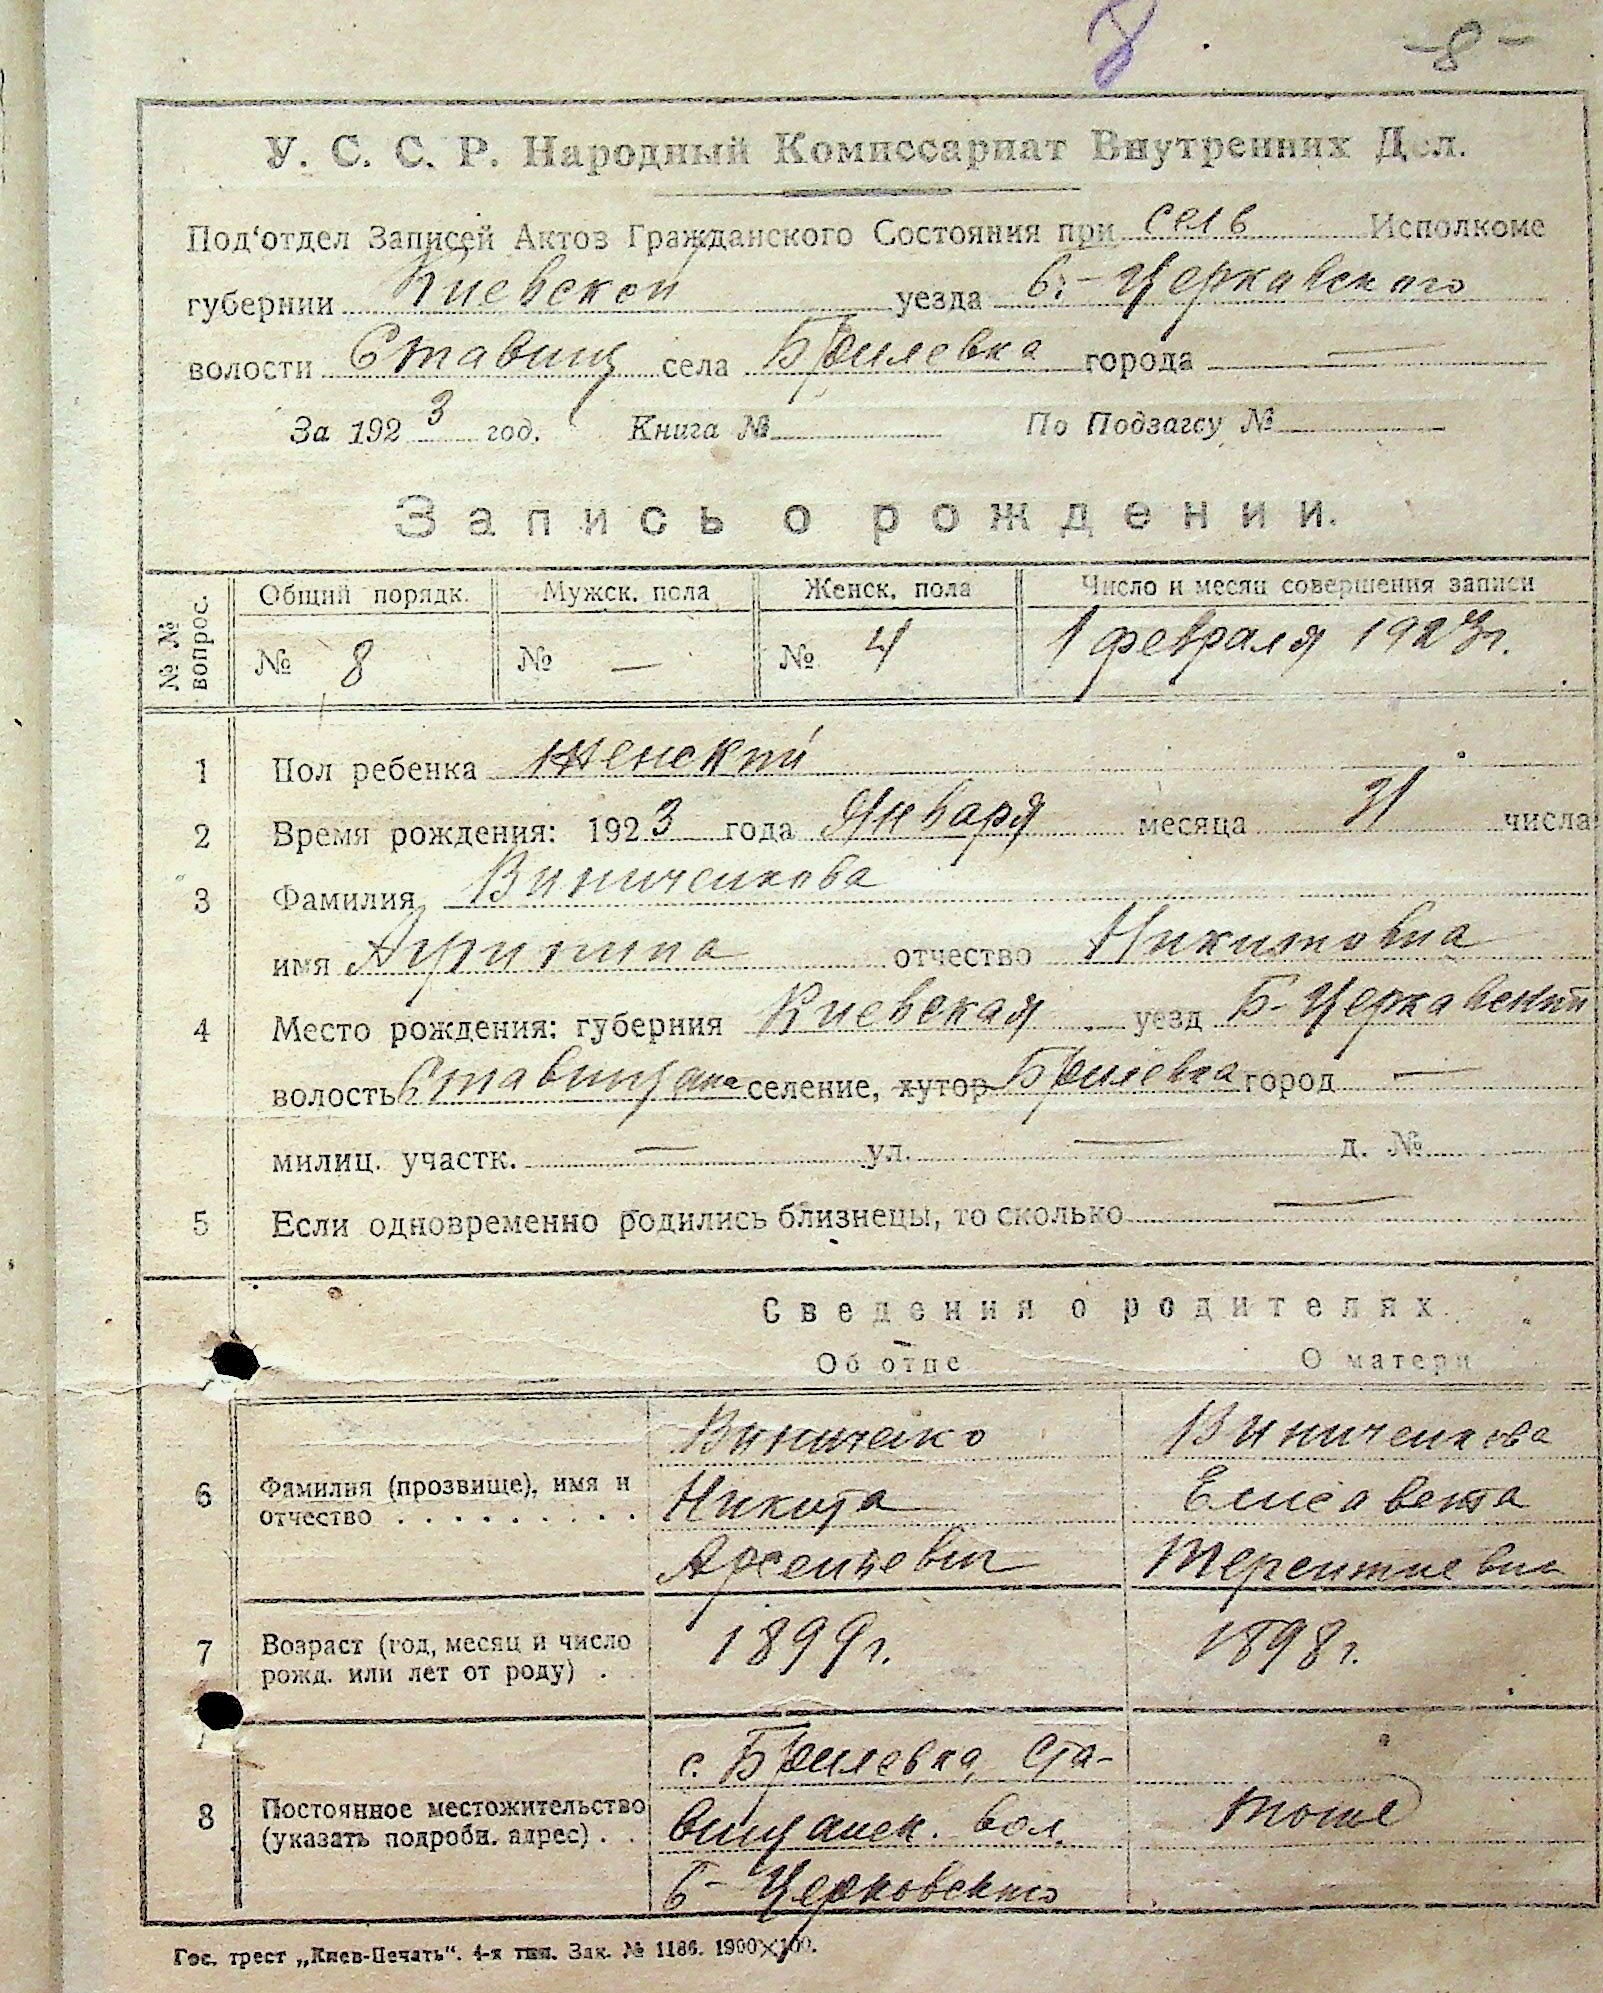 8 -8-
У. С. С. Р. Народный Комиссариат Внутренних Дел.
Под‘отдел Записей Актов Гражданского Состояния при сель Исполкоме
губернии Киевской уезда Б:-Церковского
волости Ставищ села Брилевка города —
За 1923 год. Книга № По Подзагсу №
Запись о рождении.
№ № вопрос. Общий порядк. Мужск. пола Женск. пола Число и месяц совершения записи
№ 8 № — № 4 1 февраля 1923 г.
1 Пол ребенка женский
2 Время рождения: 1923 года Января месяца 31 числа
3 Фамилия Виниченкова
имя отчество Никитовна
4 Место рождения: губерния Киевская уезд Б-Церковский
волость Ставищанская селение, хутор Брилевка город —
милиц. участк. — ул. — д. №
5 Если одновременно родились близнецы, то сколько —
Сведения о родителях.
Об отце О матери
Виниченко Виниченкова
6 Фамилия (прозвище), имя и Никита Елисавета
отчество . . . . . . . . . Арсентьевич Терентиевна
7 Возраст (год, месяц и число 1899 г. 1898 г.
рожд. или лет от роду) .
с. Брилевка, Ста-
8 Постоянное местожительство вищанск. вол. тоже
(указать подробн. адрес) . .
Б- Церковского
Гос. трест „Киев-Печать“. 4-я тип. Зак. № 1186. 1900×100.